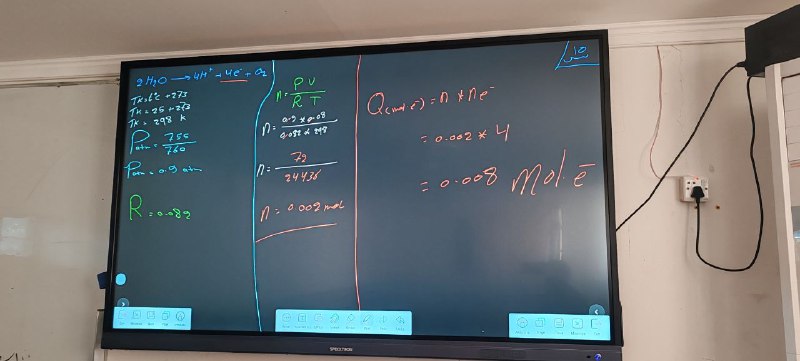 2H₂O → 4H⁺ + 4e⁻ + O₂
Tk = t°c + 273
Tk = 25 + 273
Tk = 298 k
Patm = 755/760
Patm = 0.9 atm
R = 0.082
n = PV/RT
n = 0.9 * 0.08/0.082 * 298
n = 72/24436
n = 0.002 mol
Q(mol e⁻) = n * ne⁻
= 0.002 * 4
= 0.008 mol.e⁻
SPECKTRON